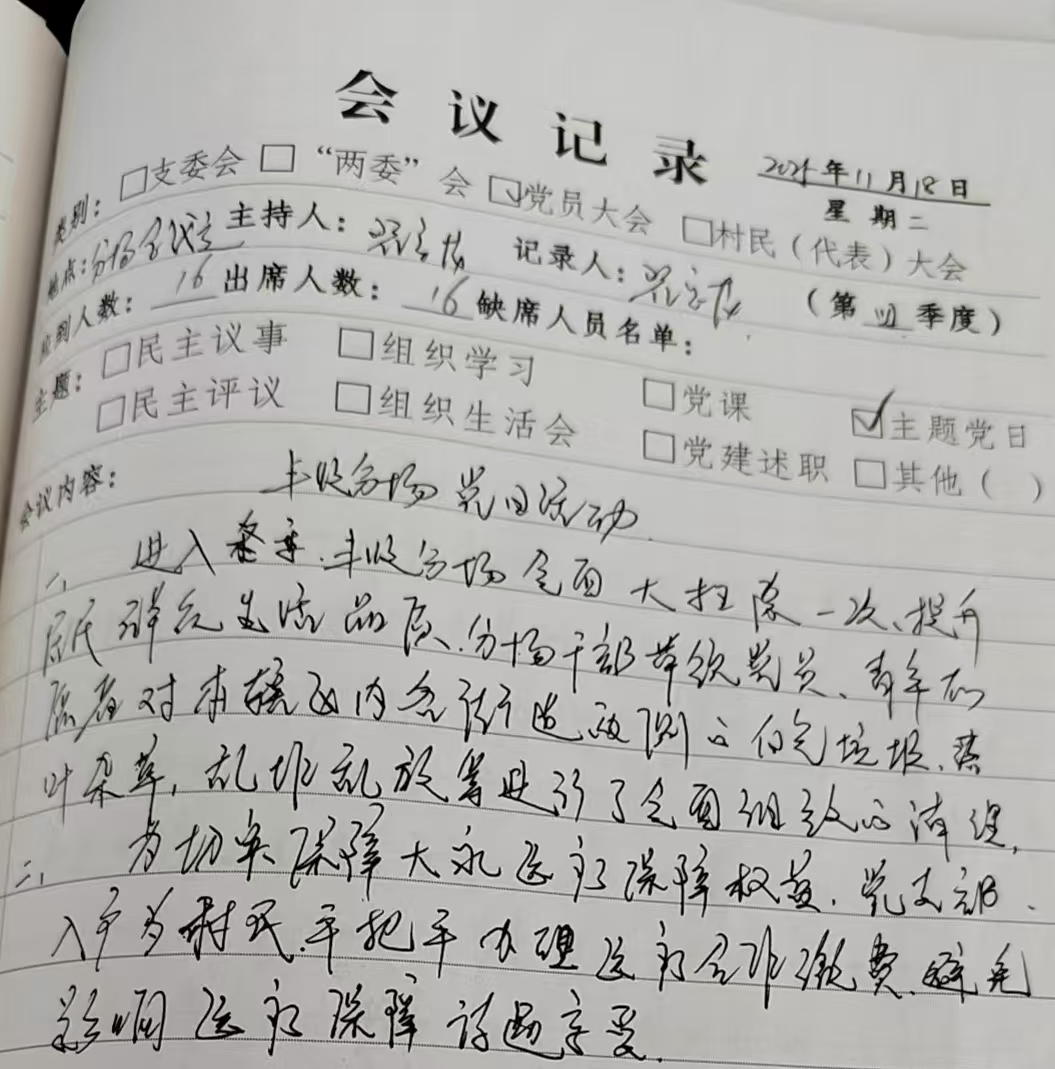 会议记录
2025年11月18日
星期二
类别：□支委会 □“两委”会 ☑党员大会 □村民（代表）大会
地点：分场会议室 主持人： 记录人： （第四季度）
应到人数：16 出席人数：16 缺席人员名单：
主题：□民主议事 □组织学习 □党课 ☑主题党日
□民主评议 □组织生活会 □党建述职 □其他（ ）
会议内容： 丰收分场党日活动
一、进入冬季，丰收分场全面大扫除一次，提升
居民群众生活品质，分场干部带领党员、青年志
愿者对本辖区内各街道两侧的白色垃圾、落
叶杂草，乱堆乱放等进行了全面细致的清理，
二、为切实保障大家医疗保障权益，党支部
入户为村民手把手办理医疗合作缴费，避免
影响医疗保障待遇享受。